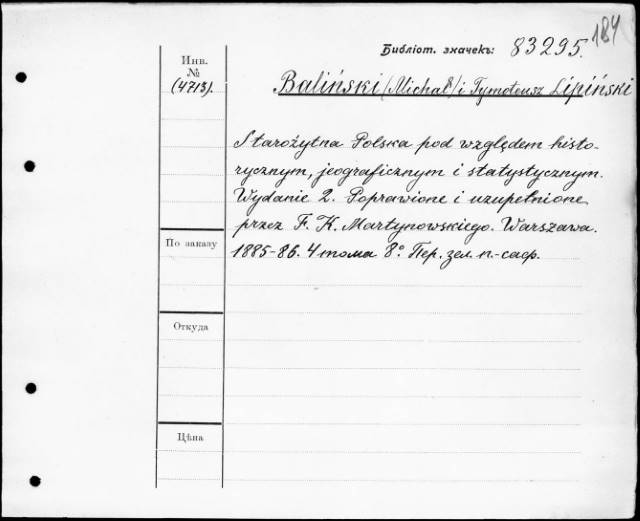 184
Библіот. значекъ: 83295.
Инв.
№
(4713).
Baliński (Michał) i Tymoteusz Lipiński
Starożytna Polska pod względem histo-
rycznym, jeograficznym i statystycznym.
Wydanie 2. Poprawione i uzupełnione
przez F. K. Martynowskiego. Warszawa.
1885-86. 4 тома 8º. Пер. зел. п.-саф.
По заказу
Откуда
Цѣна